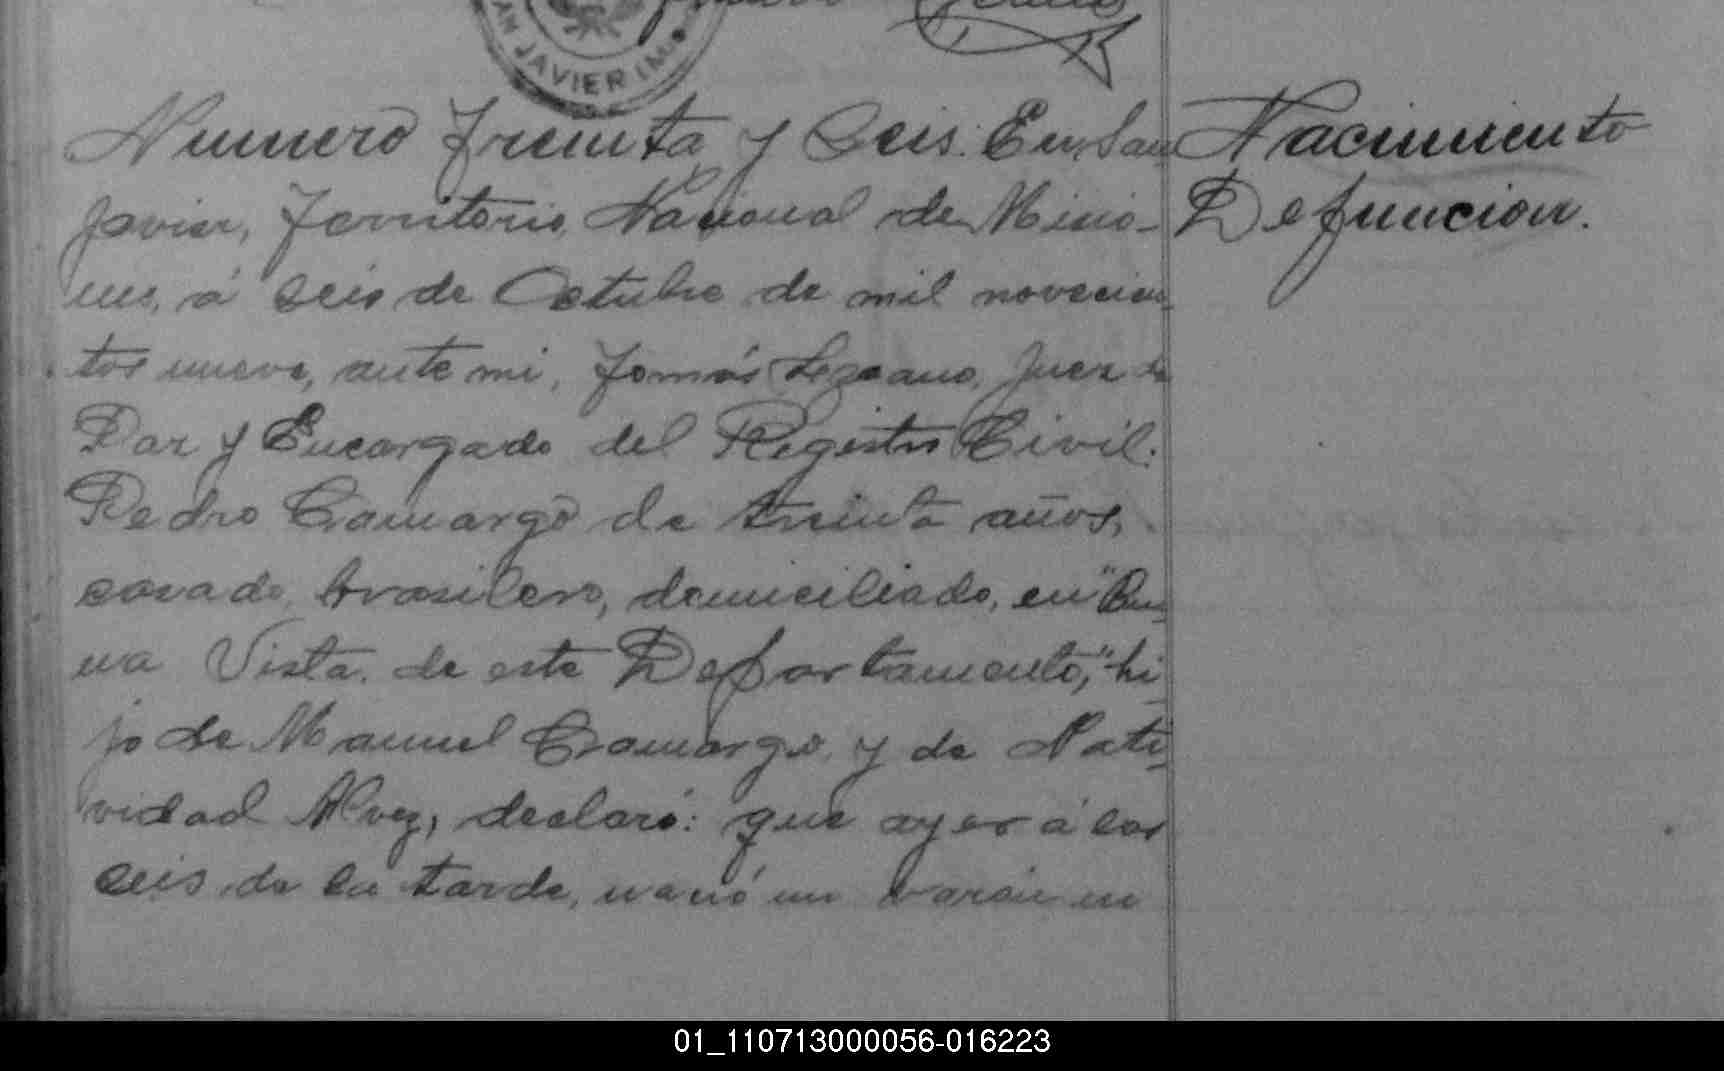 SAN JAVIER (M
Numero Treinta y Seis. En San
Javier, Territorio Nacional de Misio-
nes, á seis de Octubre de mil novecien-
tos nueve, ante mi, Tomás Lezcano, Juez de
Paz y Encargado del Registro Civil:
Pedro Camargo de treinta años,
casado, brasilero, domiciliado, en "Bue-
na Vista, de este Departamento," hi-
jo de Manuel Camargo, y de Nati-
vidad Alvez, declaró: que ayer á las
seis de la tarde, nació un varón en
Nacimiento
Defuncion.
01_110713000056-016223